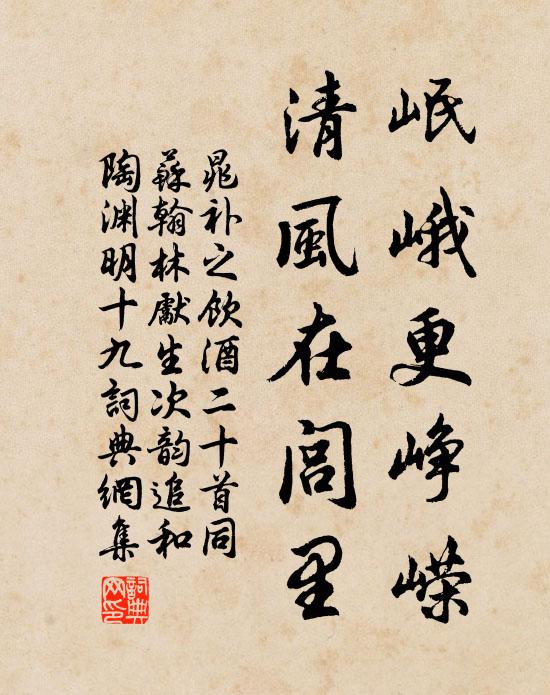 岷峨更峥嵘
清風在闾里
晁补之饮酒二十首同
蘇翰林獻生次韵追和
陶渊明十九詞典網集
詞典网印